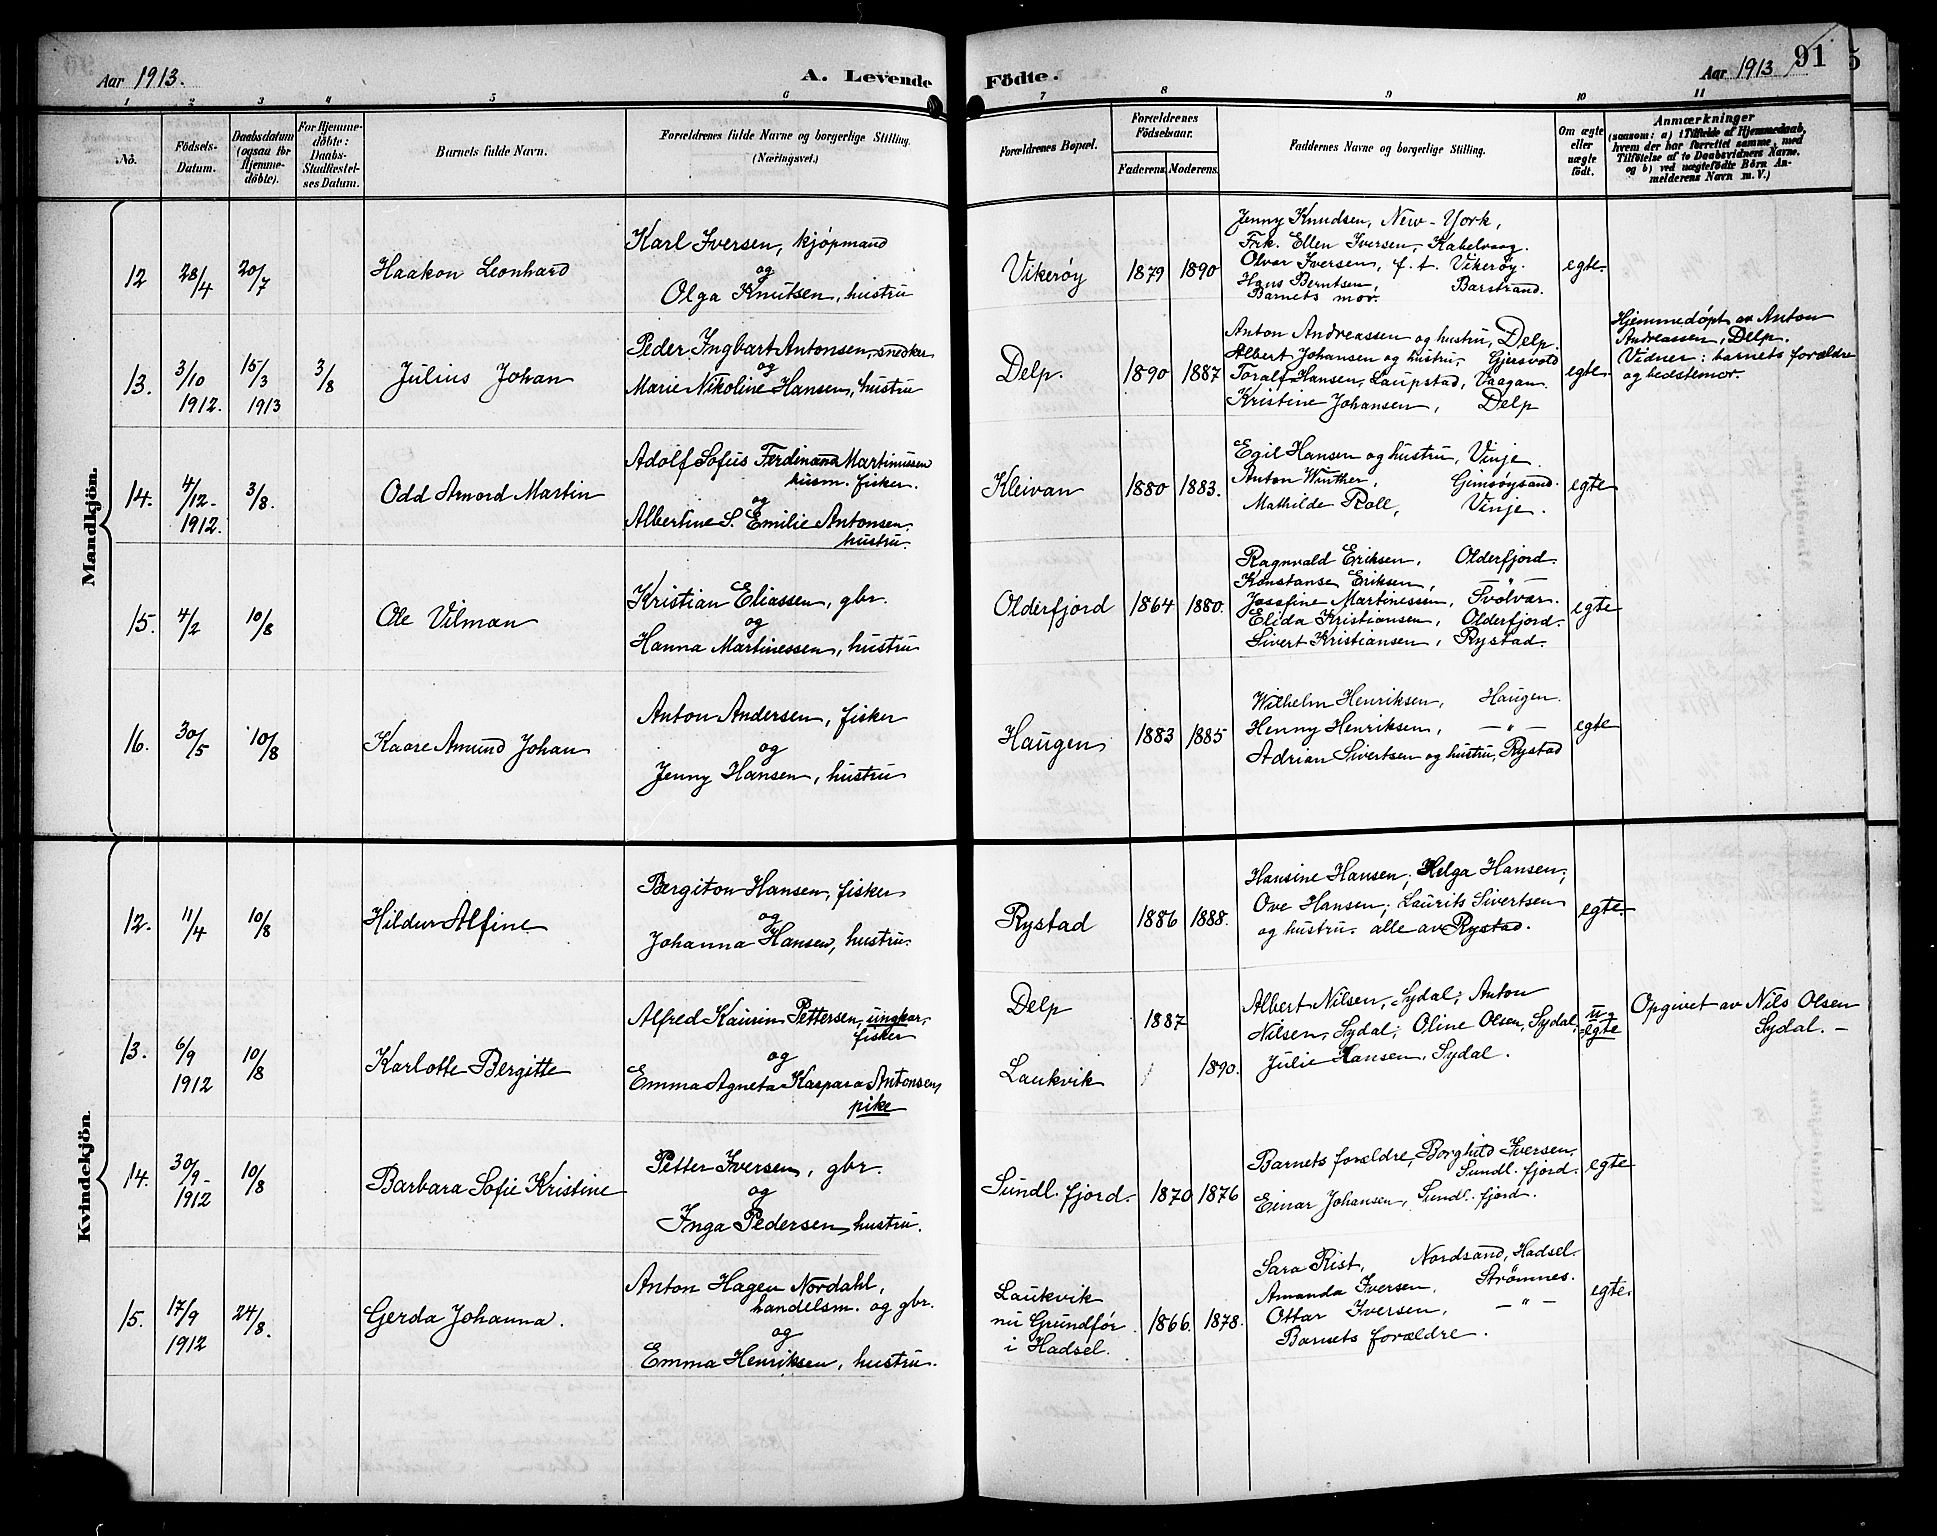 Aar 1913.
A. Levende
Födte.
Aar 1913
91
5
1 2 3 4 5 6 7 8 9 10 11
No.
Födsels-
Datum.
Daabsdatum
(ogsaa for
Hjemme-
döbte).
For Hjemme-
döbte:
Daabs-
Stadfæstel-
ses Datum.
Barnets fulde Navn.
Forældrenes fulde Navne og borgerlige Stilling.
(Næringsvei.)
Forældrenes Bopæl.
Forældrenes
Födselsaar.
Faderens. Moderens.
Faddernes Navne og borgerlige Stilling.
Om ægte
eller
uægte
født.
Anmærkninger
(saasom: a) i Tilfælde af Hjemmedaab,
hvem der har forrettet samme, med
Tilföielse af to Daabsvidners Navne,
og b) ved uægtefödte Börn An-
melderens Navn m. V.)
Mandkjön.
12
28/4
20/7
Haakon Leonhard
Karl Iversen, kjøpmand
og
Olga Knutsen, hustru
Vikerøy
1879
1890
Jenny Knudsen, New-York,
Frk. Ellen Iversen, Kabelvaag.
Olvar Iversen, f. t. Vikerøy.
Hans Berntsen, Barstrand.
Barnets mor.
egte.
13.
3/10
1912.
15/3
1913
3/8
Julius Johan
Peder Ingbart Antonsen, snedker
og
Marie Nikoline Hansen, hustru
Delp.
1890
1887
Anton Andreassen og hustru, Delp.
Albert Johansen og hustru, Gjersvold
Toralf Hansen, Laupstad, Vaagan.
Kristine Johansen, Delp
egte.
Hjemmedøpt av Anton
Andreassen, Delp.
Vidner: barnets forældre
og bedstemor.
14.
4/12-
1912.
3/8.
Odd Arnord Martin
Adolf Sofus Ferdinand Martinussen
husm. fisker.
og
Albertine S. Emilie Antonsen.
hustru.
Kleivan
1880
1883.
Egil Hansen og hustru, Vinje.
Anton Winther, Gimsøysand.
Mathilde Roll, Vinje.
egte
15.
4/2
10/8
Ole Vilman
Kristian Eliassen, gbr.
og
Hanna Martinessen, hustru
Olderfjord
1864
1880.
Ragnvald Eriksen, Olderfjord.
Konstanse Eriksen, "
Josefine Martinessen, Svolvær.
Elida Kristiansen, Olderfjord.
Sivert Kristiansen, Rystad.
egte
16.
30/5
10/8
Kaare Amund Johan
Anton Andersen, fisker
og
Jenny Hansen, hustru
Haugen
1883
1885
Wilhelm Henriksen, Haugen.
Henny Henriksen, — " —
Adrian Sivertsen og hustru, Rystad
egte
Kvindekjön.
12.
11/4
10/8
Hildur Alfine
Bergiton Hansen, fisker
og
Johanna Hansen, hustru.
Rystad
1886
1888.
Hansine Hansen; Helga Hansen;
Ove Hansen; Laurits Sivertsen
og hustru. alle av Rystad.
egte.
13.
6/9
1912
10/8
Karlotte Bergitte
Alfred Kaurin Pettersen, ungkar,
fisker
og
Emma Agneta Kaspara Antonsen,
pike
Delp
Laukvik
1887
1890.
Albert Nilsen, Sydal; Anton
Nilsen, Sydal; Oline Olsen, Sydal;
Julie Hansen, Sydal.
u-
egte
Opgivet av Nils Olsen
Sydal. —
14.
30/9-
1912
10/8
Barbara Sofie Kristine
Petter Iversen, gbr.
og
Inga Pedersen, hustru.
Sundl. fjord.
1870
1876
Barnets forældre, Borghild Iversen,
Sundl. fjord.
Einar Johansen, Sundl. fjord.
egte
15.
17/9
1912
24/8.
Gerda Johanna.
Anton Hagen Nordahl,
handelsm. og gbr.
og
Emma Henriksen, hustru.
Laukvik
nu Grundfør
i Hadsel.
1866.
1878.
Sara Rist, Nordsand, Hadsel.
Amanda Iversen, Strømnes.
Ottar Iversen, — " —
Barnets forældre.
egte.